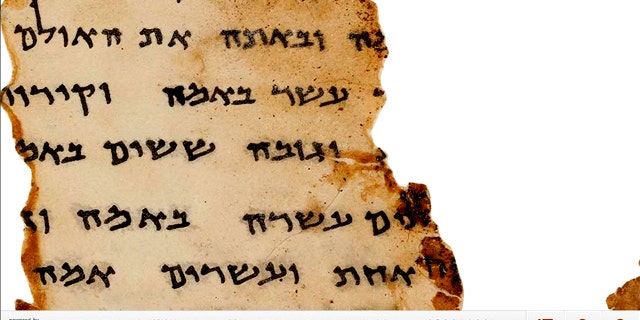 ה ובאתה את האולם
עשר באמה וקירות
וגובה ששים באמ
ים עשרה באמה
אחת ועשרים אמה